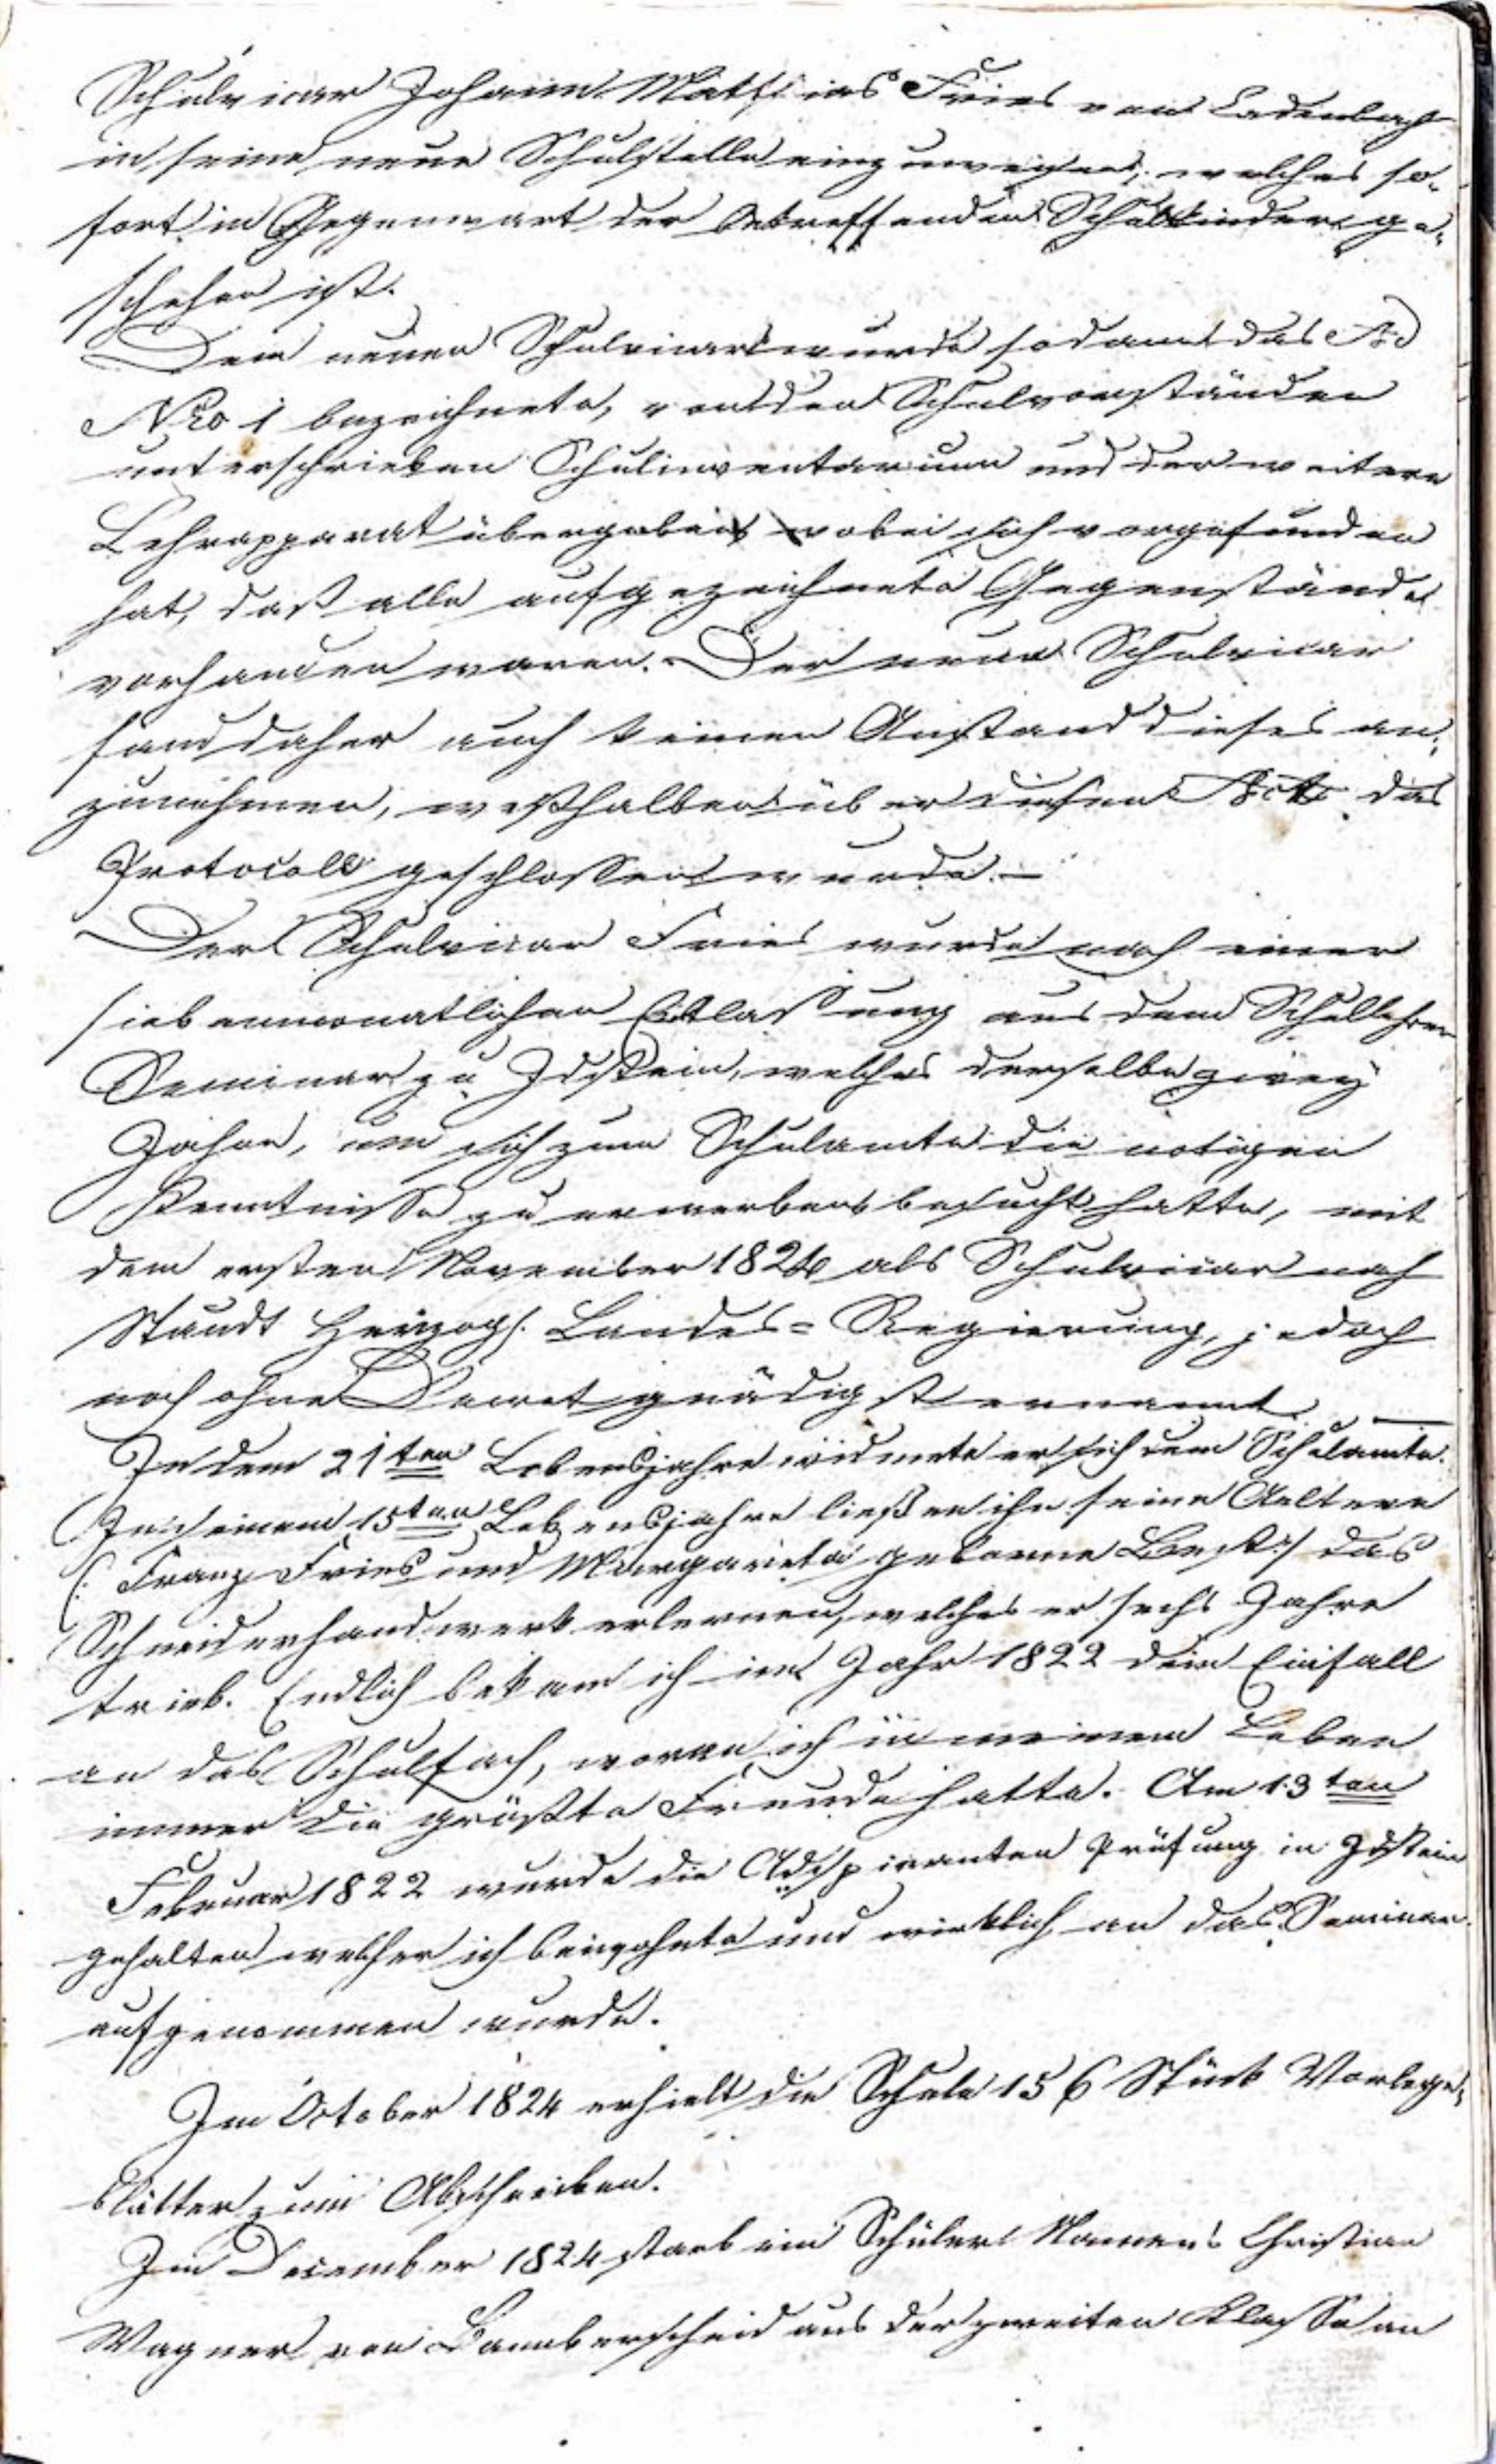 Schulvicar Johann Mathias Fries von Ladenbach
in seine neue Schulstelle einzuweisen, welches so-
fort in Gegenwart der betreffenden Schulkinder ge-
schehen ist.
Dem neuen Schulvicar wurde sodann das
Nro 1 bezeichnete, von den Schulvorständen
unterschrieben Schulinventarium und der weitere
Lehrapparat übergeben wobei sich vorgefunden
hat, daß alle aufgezeichnete Gegenstände
vorhanden waren. Der neue Schulvicar
fand daher auch keinen Anstand dieses an-
zunehmen, weßhalben über diesen Act das
Protocoll geschlossen wurde. —
Der Schulvicar Fries wurde nach einer
siebenmonatlichen Entlassung aus dem Schullehrer
Seminar zu Idstein, welches derselbe zwey
Jahre, um sich zum Schulamte die nötigen
Kenntnisse zu erwerben besucht hatte, mit
dem ersten November 1824 als Schulvicar nach
Staudt Herzogl. Landes=Regierung, jedoch
noch ohne Decret gnädigst ernannt. —
In dem 21ten Lebensjahre widmete er sich dem Schulamte.
In seinem 15ten Lebensjahre ließen ihn seine Aeltern
(: Franz Fries und Margareta geborne :) das
Schneiderhandwerk erlernen, welches er sechs Jahre
trieb. Endlich bekam ich im Jahr 1822 den Einfall
an das Schulfach, woran ich in meinem Leben
immer die größte Freude hatte. Am 13ten
Februar 1822 wurde die Adspiranten Prüfung in Idstein
gehalten welcher ich beiwohnte und wirklich an das Seminar
aufgenommen wurde.
Im October 1824 erhielt die Schule 156 Stück Vorlege-
blätter zum Abschreiben.
Im December 1824 starb ein Schüler Namens Christian
Wagner von Bannberscheid aus der zweiten Klasse an